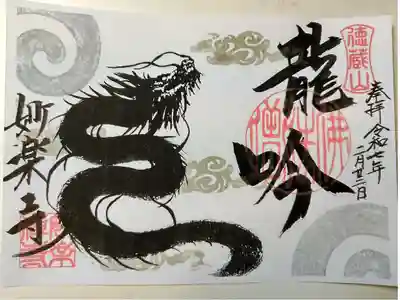 徳蔵山
奉拝 令和七年
二月廿二日
龍吟
妙楽寺